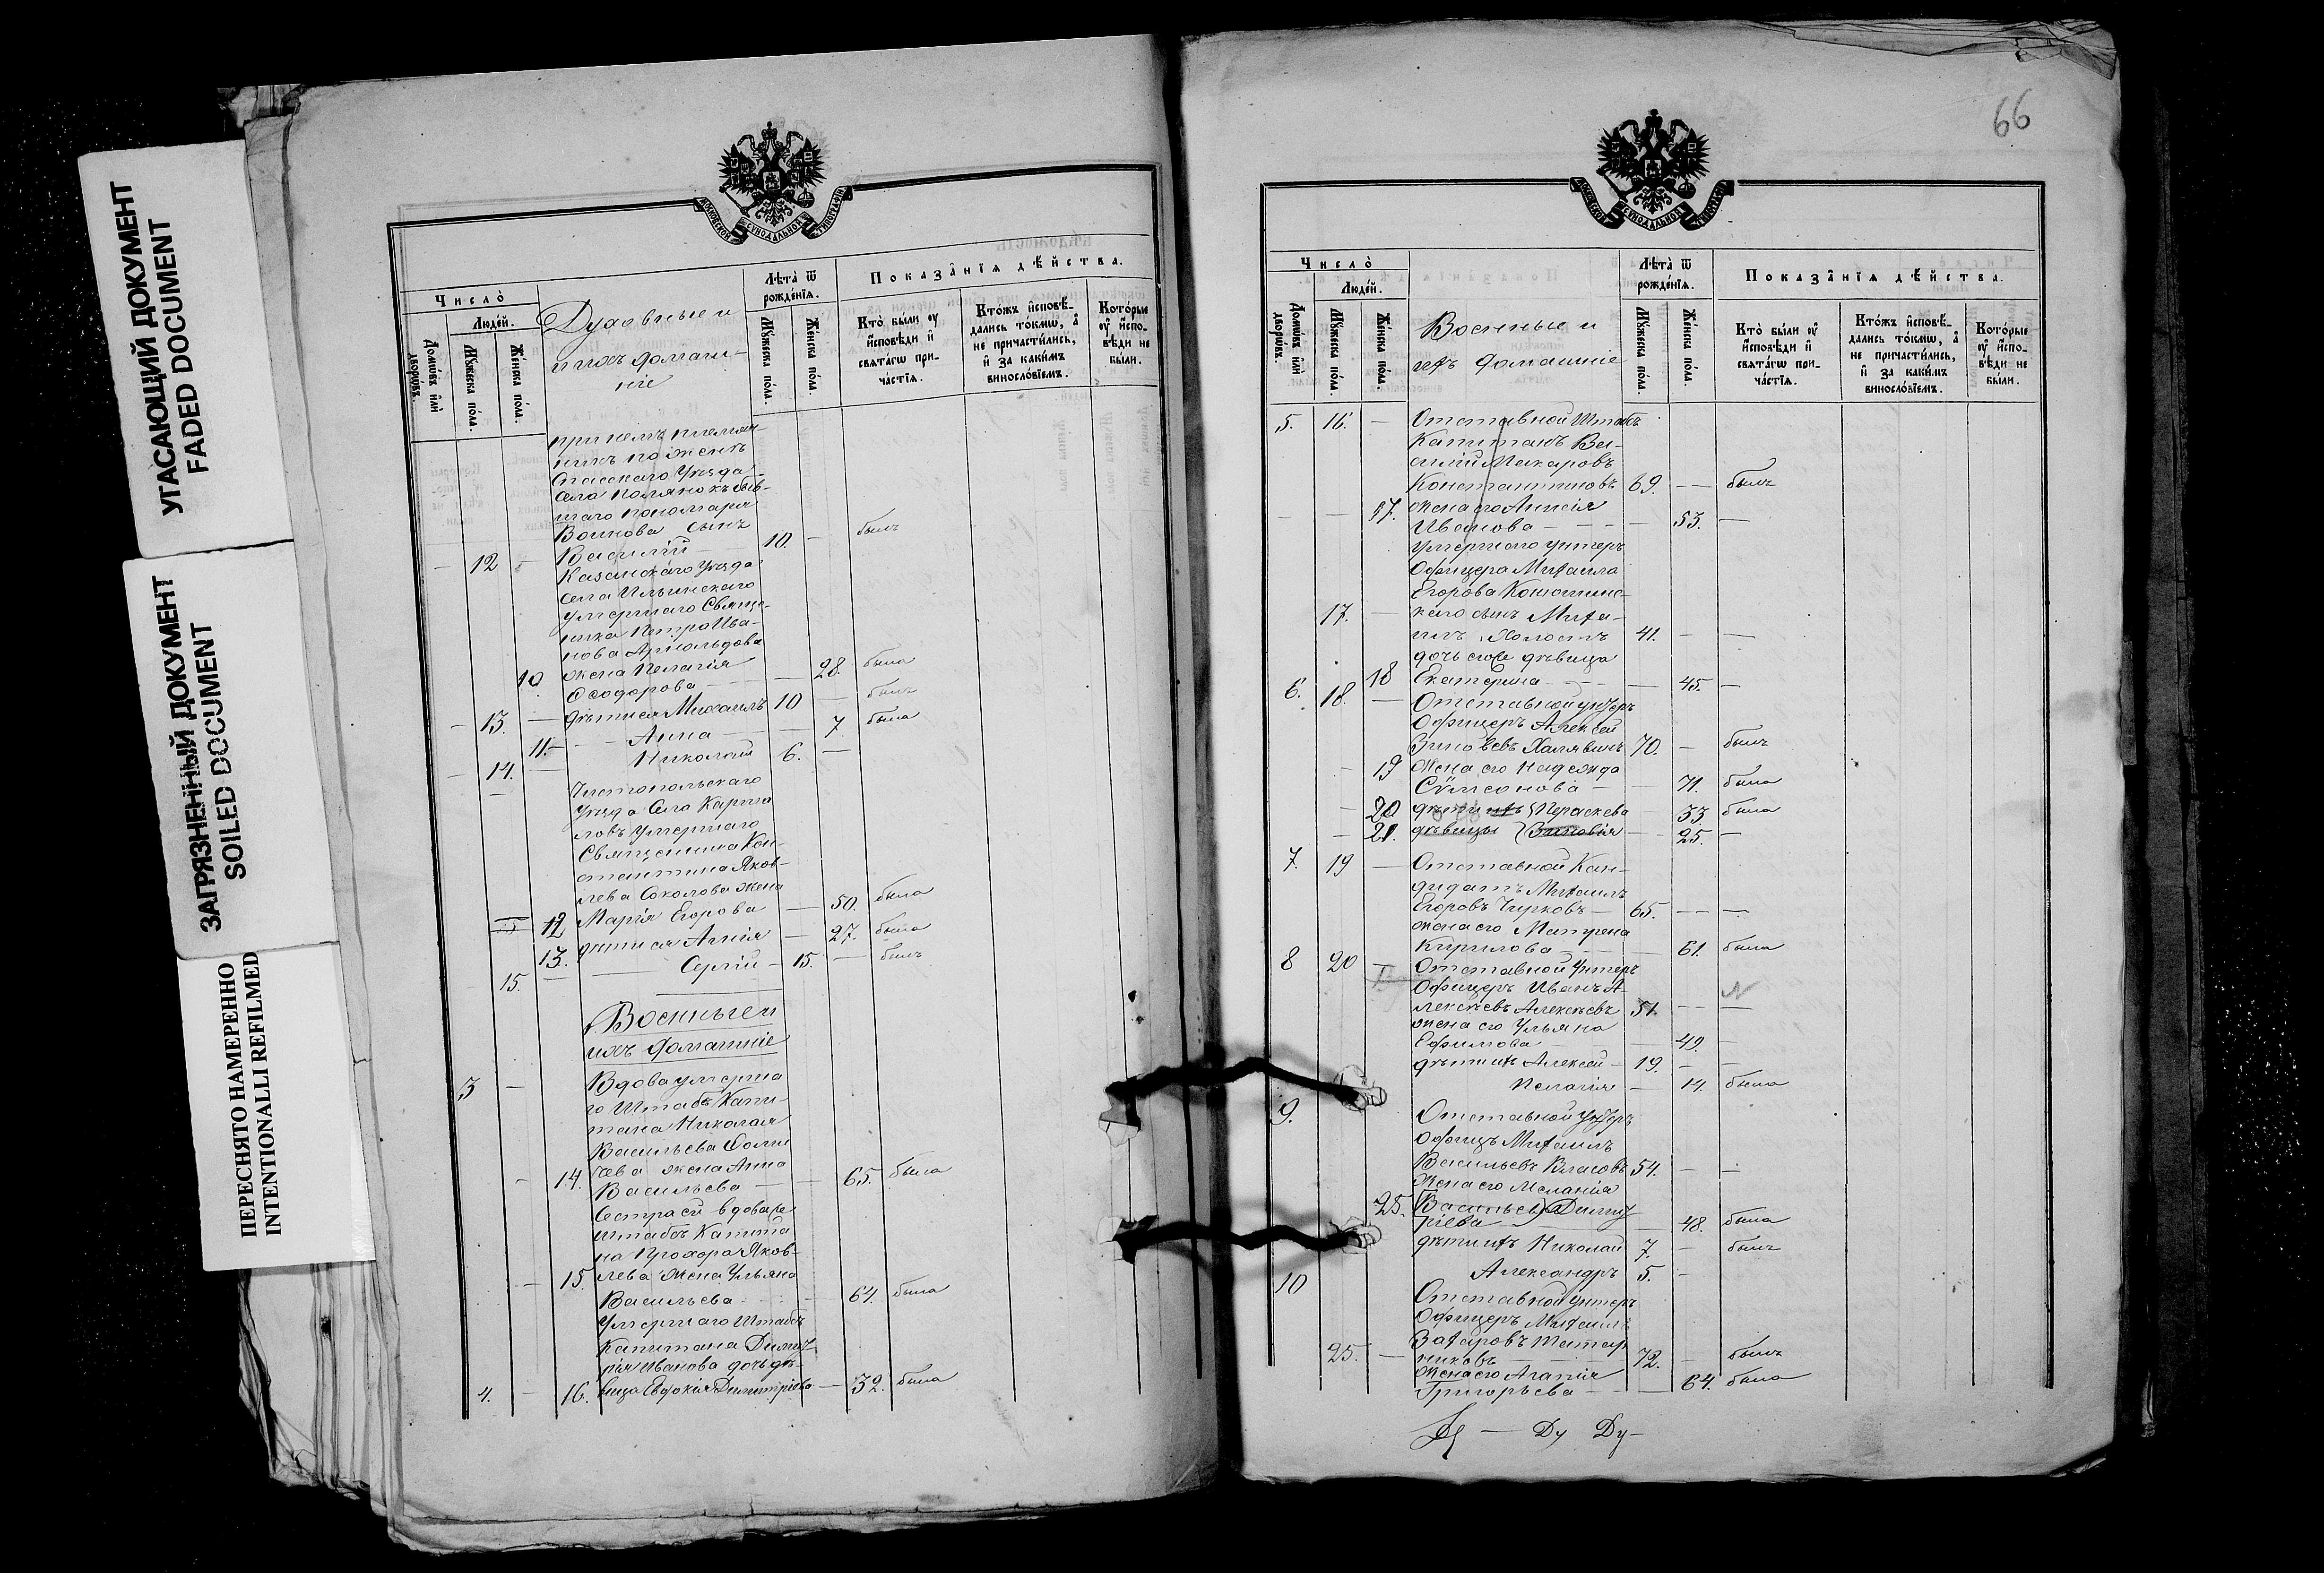 УГАСАЮЩИЙ ДОКУМЕНТ
FADED DOCUMENT
ЗАГРЯЗНЕННЫЙ ДОКУМЕНТ
SOILED DOCUMENT
ПЕРЕСНЯТО НАМЕРЕННО
INTENTIONALLI REFILMED
МОСКОВСКОЙ СѴНОДАЛЬНОЙ ТИПОГРАФІИ
Число̀
Люде́й.
Домѡ́въ и҆лѝ дворѡ́въ.
Мꙋ́жеска по́ла.
Же́нска по́ла.
Духовные и
ихъ домаш-
ніе
Лѣ́та ѿ рожде́нїѧ.
Мꙋ́жеска по́ла.
Же́нска по́ла.
Показа̑нїѧ дѣ́йства.
Кто̀ бы́ли ᲂу҆ и҆сповѣ́ди и҆ свѧта́гѡ при-
ча́стїѧ.
Кто́жъ и҆сповѣ́-
дались то́кмѡ, а҆
не причасти́лись,
и҆ за каки́мъ
винослові́емъ.
Кото́рые
ᲂу҆ и҆спо-
вѣ́ди не
бы́ли.
при немъ племян-
никъ по женѣ
Спасскаго Уѣзда
села Полянокъ быв-
шаго пономаря
Воинова сынъ
— 12 — Василій — 10. — былъ
Казанскаго Уѣзда
села Ильинскаго
умершаго Священ-
ника Петра Ива-
нова Арнольдова
10 жена Пелагія
Ѳеодорова — — 28. была
— 13. — дѣти ея Михаилъ 10 — былъ
11. — — Анна — — 7. была
— 14. — Николай 6. —
Чистопольскаго
Уѣзда Села Карга
ловъ умершаго
Священника Кон-
стантина Яков-
лева Соколова жена
12 Марія Егорова — 50. была
13. дѣти ея Агнія — 27. была
15. — Сергій — 15. — былъ
Военные и
ихъ домашніе
3 — Вдова умерша
го Штабъ Капи-
тана Николая
Васильева
жена Анна
— 14. Васильева — — 65. была
Сестра ей вдова
Штабсъ Капита
на Прохора Яков-
— 15. лева жена Ульяна
Васильева — — 64. была
Умершаго Штабсъ
Капитана Димит-
рія Иванова дочь дѣ-
4. — 16. вица Евдокія Димитріева — 32. была
66
МОСКОВСКОЙ СѴНОДАЛЬНОЙ ТИПОГРАФІИ
Число̀
Люде́й.
Домѡ́въ и҆лѝ дворѡ́въ.
Мꙋ́жеска по́ла.
Же́нска по́ла.
Военные и
ихъ домашніе
Лѣ́та ѿ
рожде́нїѧ.
Мꙋ́жеска по́ла.
Же́нска по́ла.
Показа̑нїѧ дѣ́йства.
Кто̀ бы́ли ᲂу҆
и҆сповѣ́ди и҆
свѧта́гѡ при-
ча́стїѧ.
Кто́жъ и҆сповѣ́-
дались то́кмѡ, а҆
не причасти́лись,
и҆ за каки́мъ
винослові́емъ.
Кото́рые
ᲂу҆ и҆спо-
вѣ́ди не
бы́ли.
5. 16. — Отставной Штабъ
Капитанъ Ва-
силій Макаровъ
Константиновъ 69. — — былъ
— — 17. жена его Аннсія
Иванова — — — 53. —
Умершаго унтеръ
Офицера Михаила
Егорова
17. — сынъ Миха-
илъ холостъ 41. — —
дочь его дѣвица
18 Екатерина — — — 45. —
6. 18. — Отставной унтеръ
Офицеръ Алексей
Зиновьевъ Халявинъ 70. — былъ
— 19 жена его Надежда
Сѵмеонова — — 71. была
— 20 дѣти ихъ Параскева — 33. была
— 21. дѣвицы Зиновія — 25. —
7. 19 — Отставной Кан-
дидатъ Михаилъ
Егоровъ Чирковъ — 65. — — —
жена его Матрена
Кирилова — — — 61. была
8 20 — Отставной Унтеръ
Офицеръ Иванъ А-
лексѣевъ Алексѣевъ 51. — — —
жена его Ульяна
Ефимова — — 49. —
дѣти ихъ Алексей — 19. — —
Пелагія — 14. была
9. Отставной унтеръ
офицъ Михаилъ
Васильевъ Власовъ 54. — —
жена его Меланія
25. (Васильев) Димит
ріева — — 48. была
дѣти ихъ Николай 7. — былъ
Александръ 5. —
10 Отставной унтеръ
Офицеръ Михаилъ
Захаровъ Татар
25. — никовъ — — 72. — былъ
жена его Агапія
Григорьева — — — 64. была